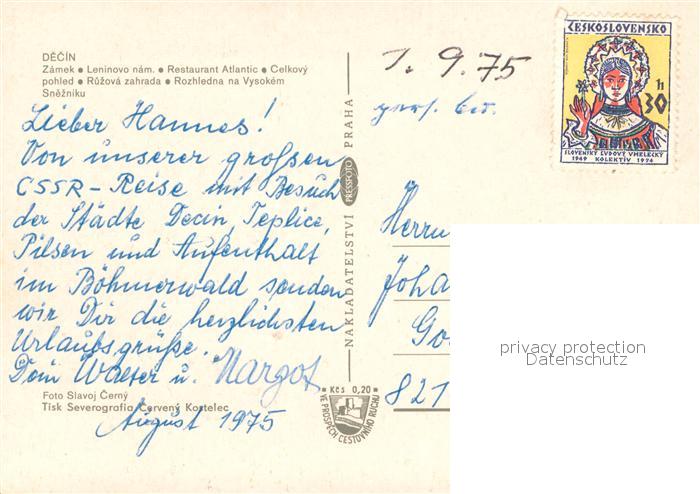 DĚČÍN
Zámek ● Leninovo nám. ● Restaurant Atlantic ● Celkový
pohled ● Růžová zahrada ● Rozhledna na Vysokém
Sněžníku
Lieber Hannes!
Von unserer großen
CSSR-Reise mit Besuch
der Städte Decin, Teplice,
Pilsen und Aufenthalt
im Böhmerwald senden
wir Dir die herzlichsten
Urlaubsgrüße.
Dein Walter u. Margot
Foto Slavoj Černý
Tisk Severografia Červený Kostelec
August 1975
NAKLADATELSTVÍ PRESSFOTO PRAHA
Kčs 0,20
VE PROSPĚCH CESTOVNÍHO RUCHU
1. 9. 75
ČESKOSLOVENSKO
30 h
SLOVENSKÝ ĽUDOVÝ UMELECKÝ
1949 KOLEKTÍV 1974
Herrn
Joha
Go
821
privacy protection
Datenschutz